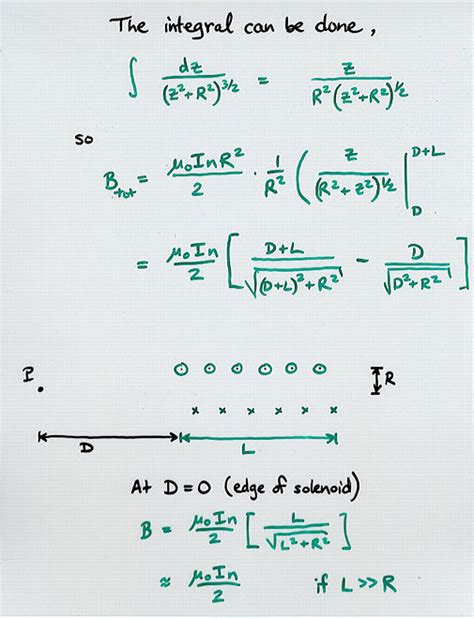 The integral can be done,
∫ dz/(z²+R²)^3/2 = z/R²(z²+R²)^1/2
so
B_tot = μ₀InR²/2 · 1/R² ( z/(R²+z²)^1/2 |_D^D+L
= μ₀In/2 [ D+L/√(D+L)²+R² − D/√D²+R² ]
P.
R
D
L
At D=0 (edge of solenoid)
B = μ₀In/2 [ L/√L²+R² ]
≈ μ₀In/2 if L>>R